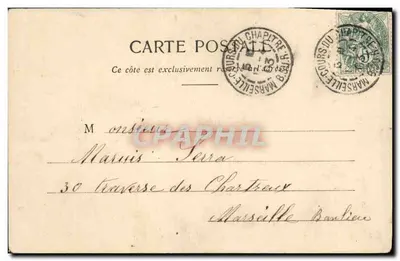 CARTE POSTALE
Ce côté est exclusivement
MARSEILLE-COURS DU CHAPITRE B. DU R.
MARSEILLE-COURS DU CHAPITRE
CPAPHIL
Monsieur
Marius Serra
30 traverse des Chartreux
Marseille Banlieue